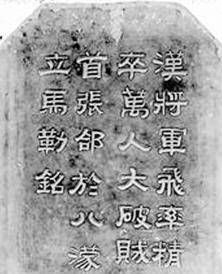 漢將軍飛率精
卒萬人大破賊
首張郃於八濛
立馬勒銘